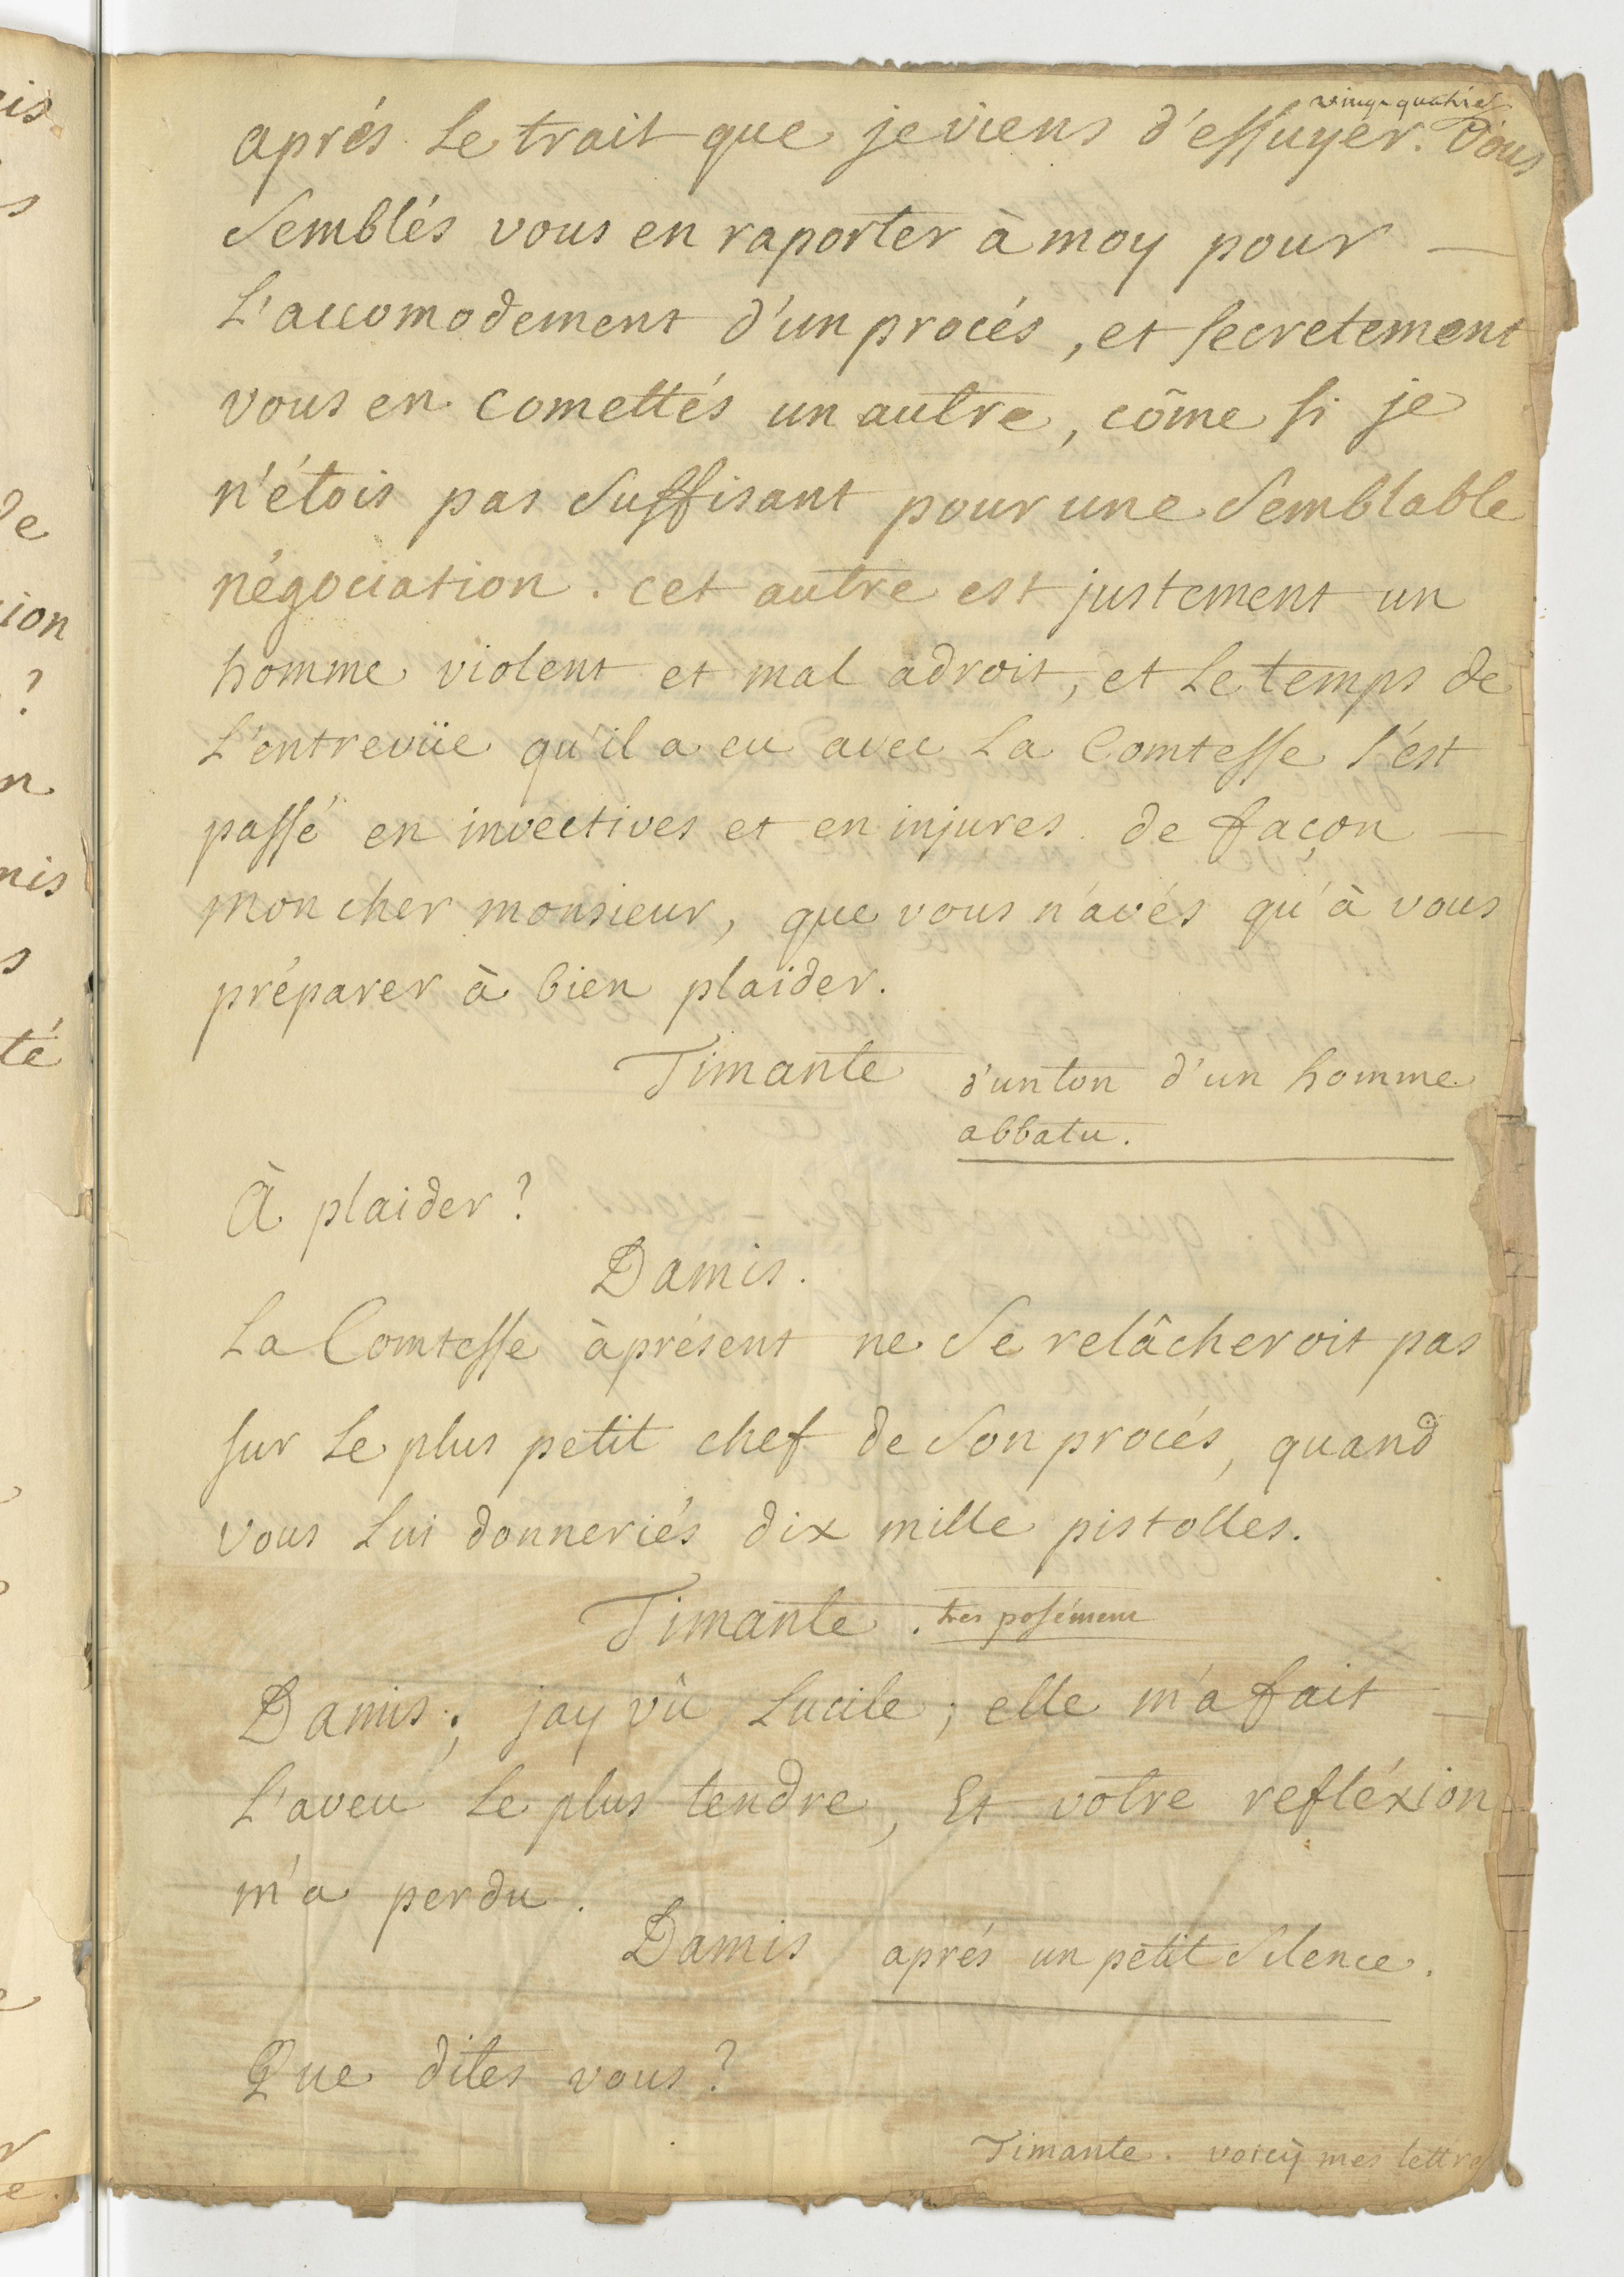 vingt quatre
aprés le trait que je viens d'essuyer. Vous
Semblés vous en raporter à moy pour —
L'accomodement d'un procés, et secretement
vous en comettés un autre, côme si je
n'étois pas Suffisant pour une Semblable
négociation. cet autre est justement un
homme violent et mal adroit, et Le temps de
L'entrevüe qu'il a eu avec La Comtesse s'est
passé en invectives et en injures. de façon —
mon cher monsieur, que vous n'avés qu'à vous
préparer à bien plaider.
Timante d'un ton d'un homme
abbatu.
À plaider?
Damis.
La Comtesse àprésent ne Se relâcheroit pas
sur Le plus petit chef de Son procés, quand
vous Lui donneriés dix mille pistolles.
Timante. tres posément
Damis; jay vû Lucile; elle m'a fait —
L'aveu Le plus tendre, Et votre refléxion
m'a perdu.
Damis aprés un petit Silence.
Que dites vous?
Timante. voicÿ mes lettres